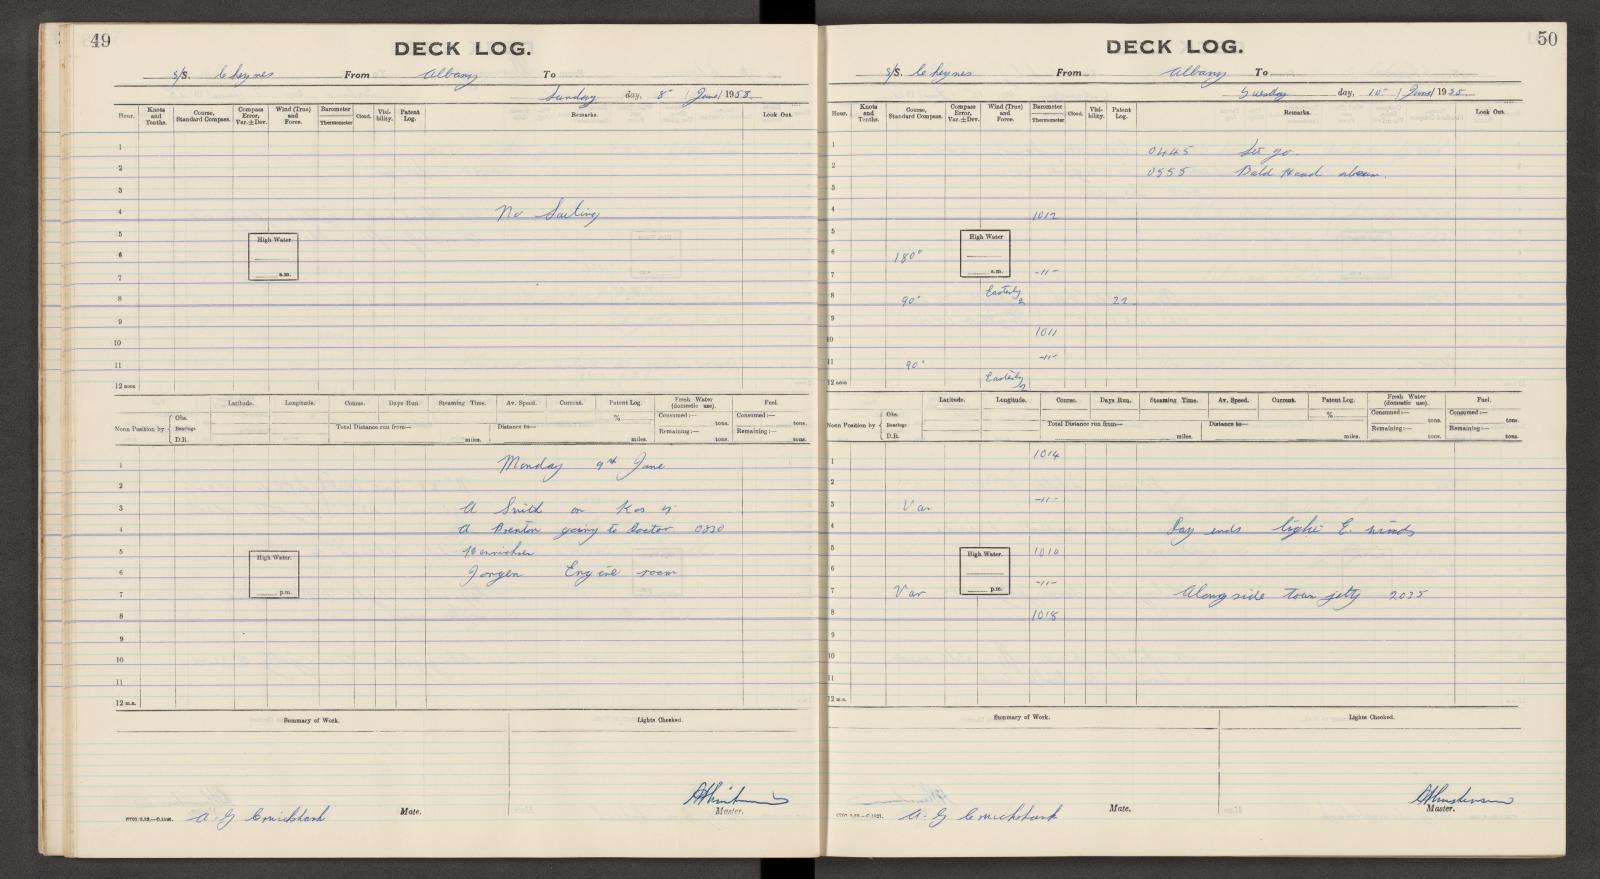 49
DECK LOG.
S/S. Cheynes From Albany To
Sunday day, 8th / June / 1958.
Hour. Knots and Tenths. Course, Standard Compass. Compass Error, Var. ± Dev. Wind (True) and Force. Barometer Thermometer Cloud. Visi-bility. Patent Log. Remarks. Look Out.
1
2
3
4 No Sailing
5
High Water
6
7 a.m.
8
9
10
11
12 noon
Latitude. Longitude. Course. Days Run. Steaming Time. Av. Speed. Current. Patent Log. Fresh Water (domestic use). Fuel.
Noon Position by { Obs. Bearings D.R.
% Consumed:— tons. Consumed:— tons.
Total Distance run from— miles. Distance to— miles. Remaining:— tons. Remaining:— tons.
1 Monday 9th June
2
3 A Smith on
4 A Brenton going to Doctor 0830
5 Henrichsen
High Water.
6 Jorgen Engine room
7 p.m.
8
9
10
11
12 m.n.
Summary of Work. Lights Checked.
A. G Cruickshank Mate. Master.
50
DECK LOG.
S/S. Cheynes From Albany To
day, 10th / June / 19
Hour. Knots and Tenths. Course, Standard Compass. Compass Error, Var. ± Dev. Wind (True) and Force. Barometer Thermometer Cloud. Visi-bility. Patent Log. Remarks. Look Out.
1 0445 Let go.
2 0555 Bald Head abeam.
3
4 1012
5
High Water
6 180°
7 a.m. -11-
8 90° Easterly 2 22
9
10 1011
11 90° -11-
12 noon Easterly 2
Latitude. Longitude. Course. Days Run. Steaming Time. Av. Speed. Current. Patent Log. Fresh Water (domestic use). Fuel.
Noon Position by { Obs. Bearings D.R.
% Consumed:— tons. Consumed:— tons.
Total Distance run from— miles. Distance to— miles. Remaining:— tons. Remaining:— tons.
1 1014
2
3 Var -11-
4 Day ends light E. winds
5 1010
High Water.
6
7 Var p.m. -11- Alongside town jetty 2035
8 1018
9
10
11
12 m.n.
Summary of Work. Lights Checked.
A. G Cruickshank Mate. Master.